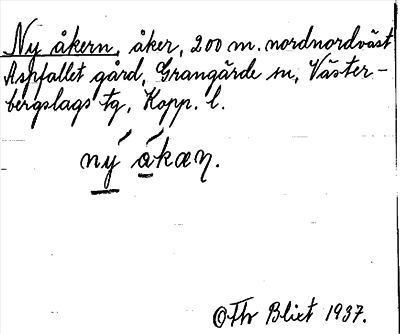 Ny åkern, åker, 200 m. nordnordväst
Aspfallet gård, Grangärde sn, Väster-
bergslags tg, Kopp. l.
ný ákæɳ.
OTh Blixt 1937.